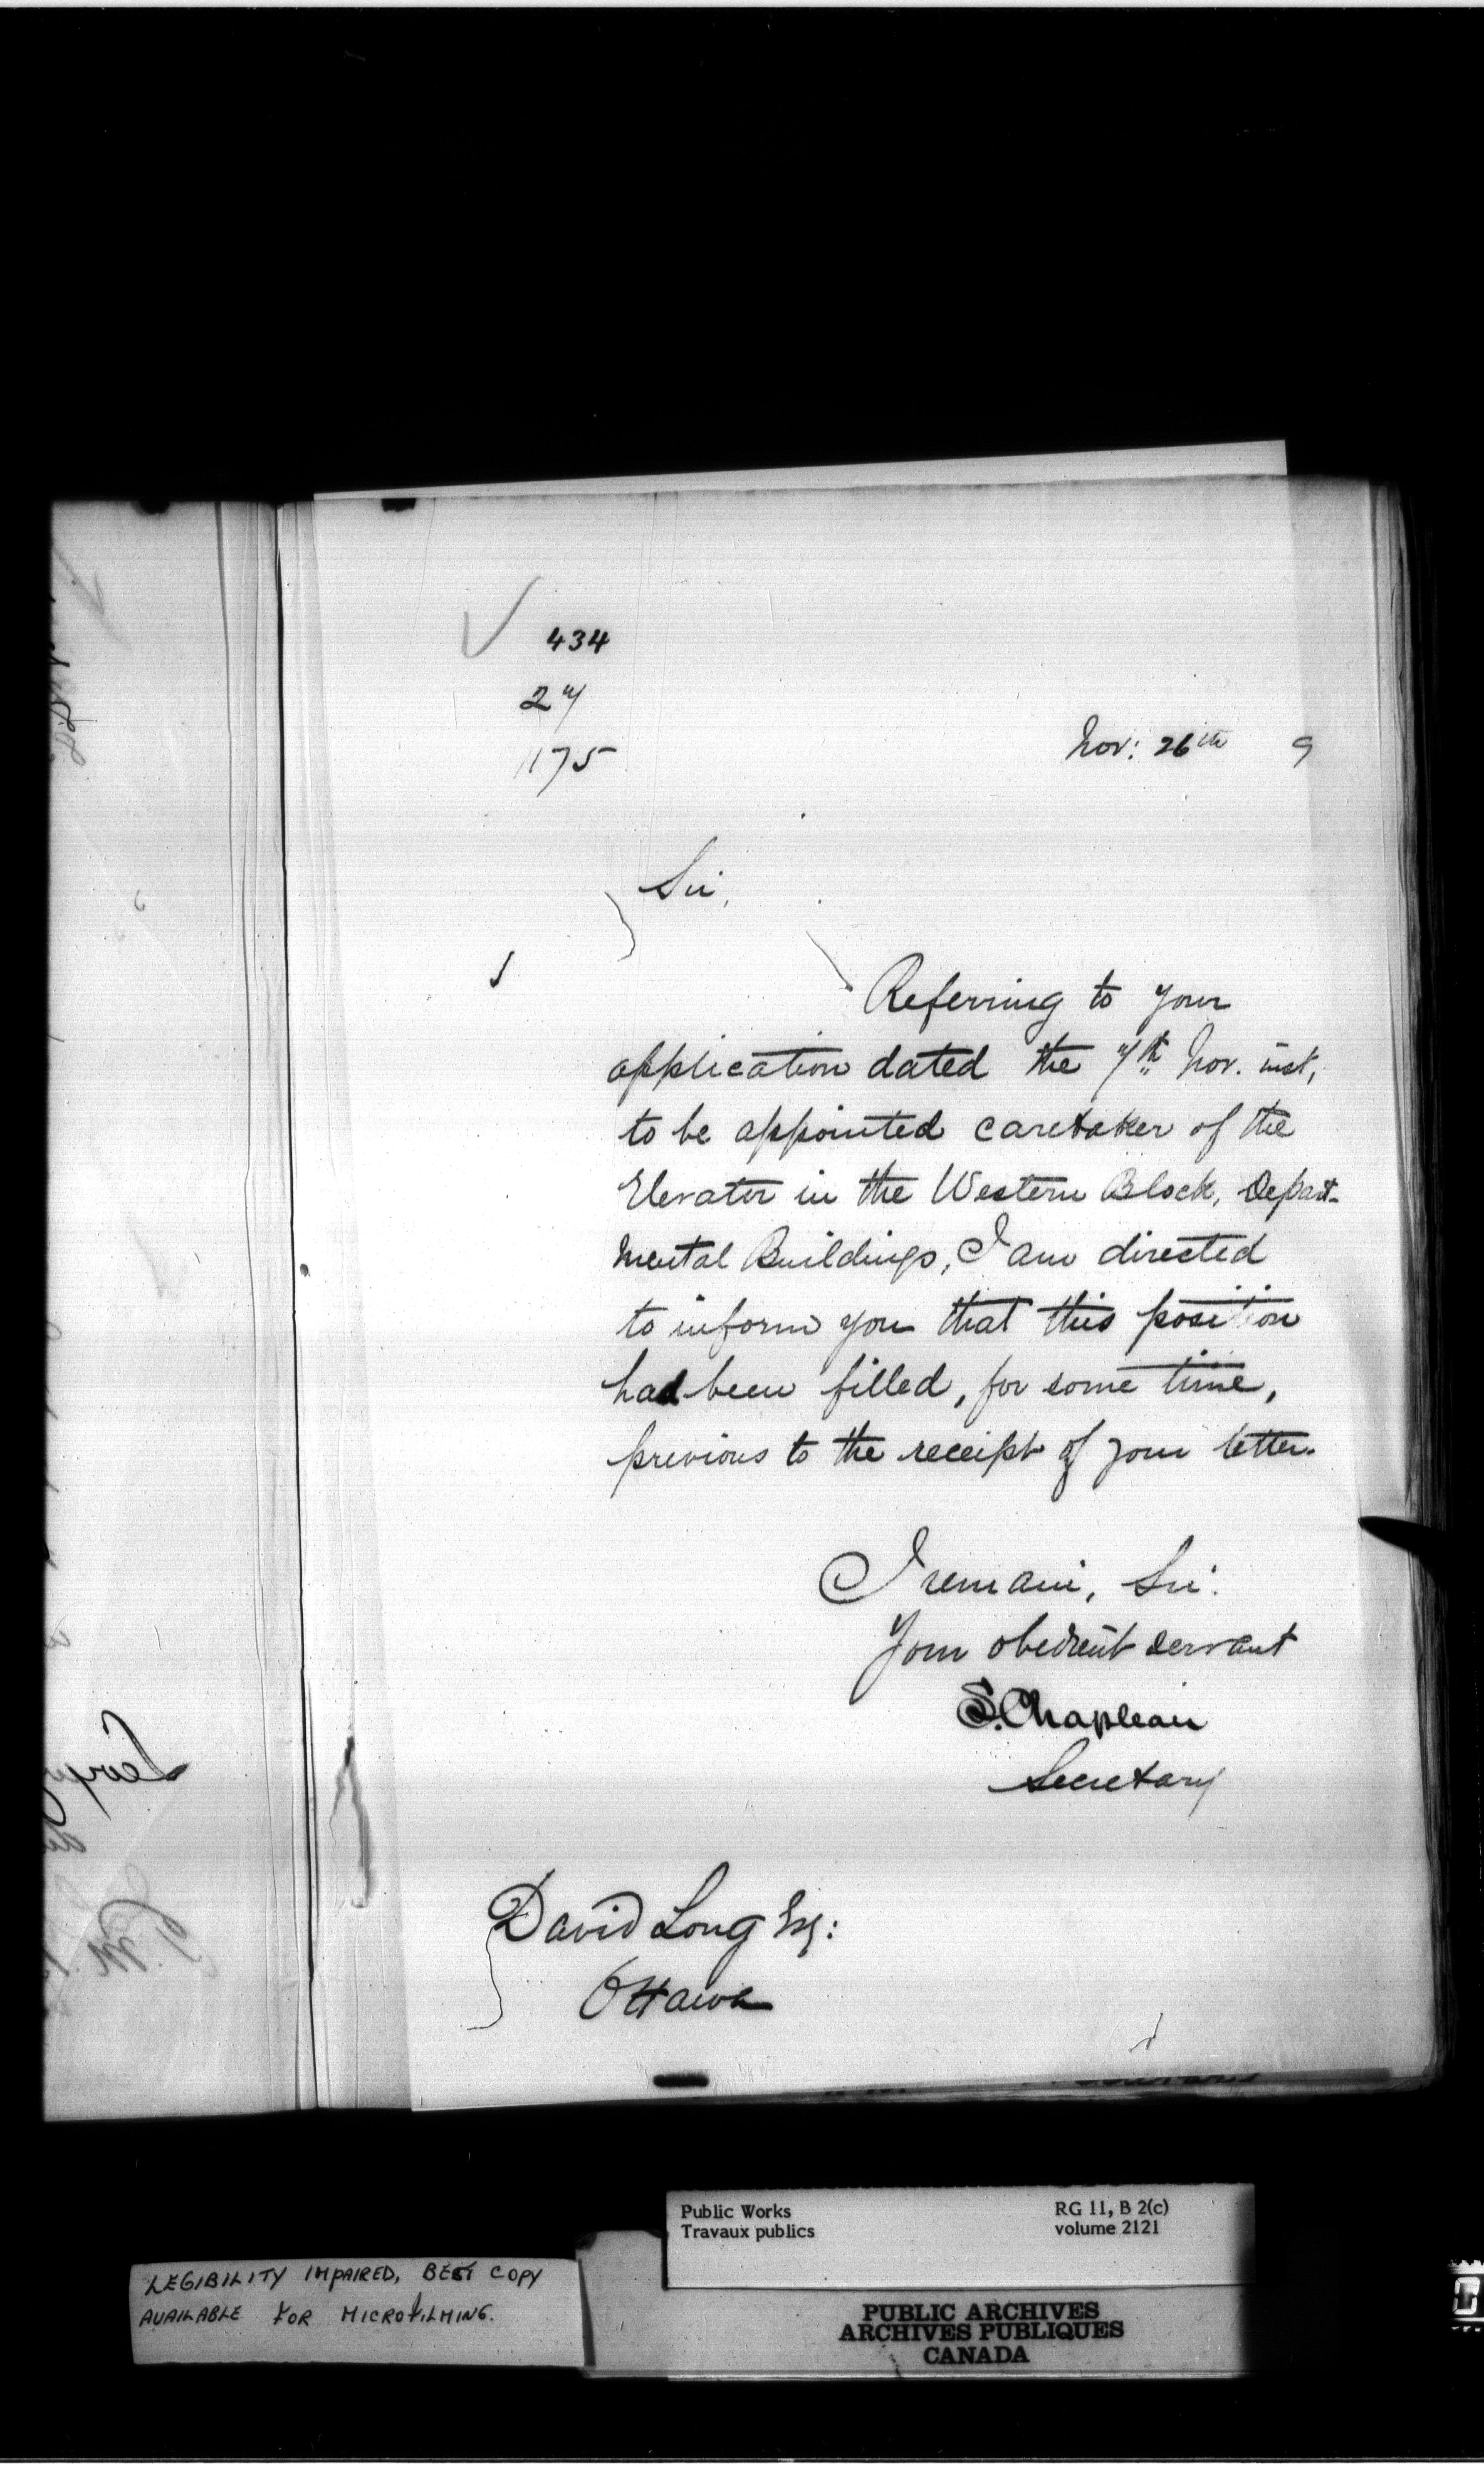 434
27
1175
Nov: 26th 9
Sir,
Referring to your
application dated the 7th Nov. inst,
to be appointed caretaker of the
Elevator in the Western Block, Depart-
mental Buildings, I am directed
to inform you that this position
had been filled, for some time,
previous to the receipt of your letter.
I remain, Sir.
Your obedient servant
S. Chapleau
Secretary
David Long Esq:
Ottawa
Public Works
Travaux publics
RG 11, B 2(c)
volume 2121
LEGIBILITY IMPAIRED, BEST COPY
AVAILABLE FOR MICROFILMING.
PUBLIC ARCHIVES
ARCHIVES PUBLIQUES
CANADA